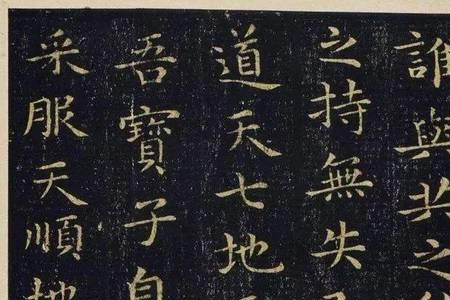 誰與共之
之持無失
道天七地
吾寶子自
采服天順地